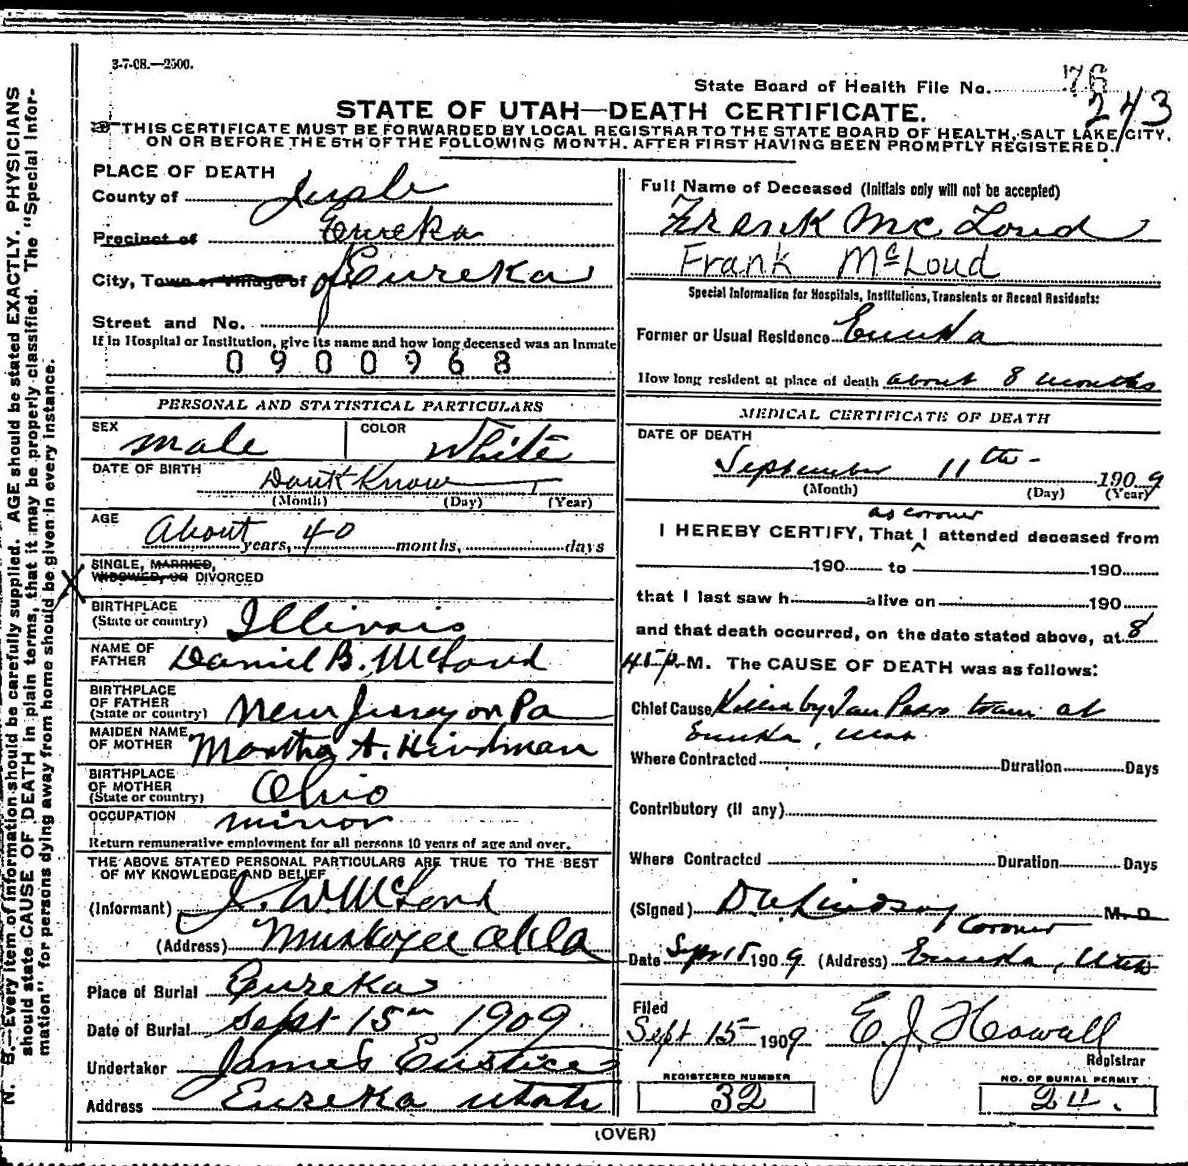 3-7-08.—2500.
State Board of Health File No. 76
243
STATE OF UTAH—DEATH CERTIFICATE.
THIS CERTIFICATE MUST BE FORWARDED BY LOCAL REGISTRAR TO THE STATE BOARD OF HEALTH, SALT LAKE CITY,
ON OR BEFORE THE 5TH OF THE FOLLOWING MONTH. AFTER FIRST HAVING BEEN PROMPTLY REGISTERED.
PLACE OF DEATH
County of
Precinct of Eureka
City, Town or Village of Eureka
Street and No.
If in Hospital or Institution, give its name and how long deceased was an Inmate
0900968
PERSONAL AND STATISTICAL PARTICULARS
SEX male COLOR White
DATE OF BIRTH Dont Know
(Month) (Day) (Year)
AGE About 40
years, months, days
SINGLE, MARRIED,
WIDOWED, OR DIVORCED
BIRTHPLACE
(State or country) Illinois
NAME OF
FATHER Daniel B. McLoud
BIRTHPLACE
OF FATHER
(State or country) New Jersey or Pa
MAIDEN NAME
OF MOTHER Martha A. Hindman
BIRTHPLACE
OF MOTHER
(State or country) Ohio
OCCUPATION minor
Return remunerative employment for all persons 10 years of age and over.
THE ABOVE STATED PERSONAL PARTICULARS ARE TRUE TO THE BEST
OF MY KNOWLEDGE AND BELIEF
(Informant) J. W. McLoud
(Address) Muskogee Okla
Place of Burial Eureka
Date of Burial Sept 15th 1909
Undertaker James Eustice
Address Eureka Utah
Full Name of Deceased (Initials only will not be accepted)
Frank McLoud
Frank McLoud
Special Information for Hospitals, Institutions, Transients or Recent Residents:
Former or Usual Residence Eureka
How long resident at place of death about 8 months
MEDICAL CERTIFICATE OF DEATH
DATE OF DEATH
September 11th - 1909
(Month) (Day) (Year)
as coroner
I HEREBY CERTIFY, That I attended deceased from
190 to 190
that I last saw h alive on 190
and that death occurred, on the date stated above, at 8
45 P. M. The CAUSE OF DEATH was as follows:
Chief Cause Killed by San Pedro train at
Eureka, Utah
Where Contracted Duration Days
Contributory (If any)
Where Contracted Duration Days
(Signed) Lindsay M. D.
Coroner
Date Sept 15 1909 (Address) Eureka, Utah
Filed
Sept 15 1909 E. J. Howall
Registrar
REGISTERED NUMBER
32
NO. OF BURIAL PERMIT
24.
(OVER)
N. B.—Every item of information should be carefully supplied. AGE should be stated EXACTLY. PHYSICIANS
should state CAUSE OF DEATH in plain terms, that it may be properly classified. The "Special Infor-
mation" for persons dying away from home should be given in every instance.